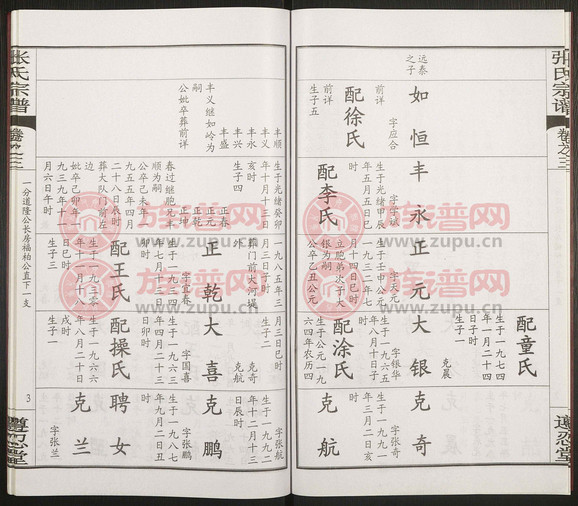 张氏宗谱
卷之三
遵忍堂
远泰
之子
如恒
字应合
前详
配徐氏
前详
生子五
丰顺
丰义
丰兴
丰永
丰盛
丰义继如岭为
嗣
公妣卒葬前详
丰永
字学斌
生于光绪甲辰
年五月五日巳
时
配李氏
生于光绪癸卯
年十月十三日
亥时
生子四
正春
正元
正乾
春过继胞兄丰
顺为嗣
公卒己未年一
九五五年四月
二十八日辰时
葬大队门前左
边
妣卒己卯年一
九三九年十一
月六日午时
正元
字天元
生于壬申公元
一九三二年六
月十四日巳时
立胞弟次子大
银为嗣
公卒乙丑公元
一九八五年三
月三日巳时
葬门前大河堤
外
正乾
字宜春
生于一九三四
年七月十三日
卯时
配王氏
生于一九三零
年十一月十八
日巳时
生子三
大银
字银华
生于一九六五
年十月二十一
日卯时
配涂氏
生于公元一九
六四年农历四
月
生子二
克奇
克航
配童氏
生于一九七二
年六月十四
生子一
克晨
大喜
字国喜
生于一九六三
年四月二十三
日卯时
配操氏
生于一九六六
年八月二十日
戌时
生子一
克奇
字张奇
生于一九八七
年三月二日亥
时
克航
字张航
生于一九九二
年十二月十三
日辰时
克鹏
字张鹏
生于一九八七
年九月二日丑
时
聘女
克兰
字张兰
张氏宗谱
卷之三
一分道隆公长房福柏公直下一支
3
遵忍堂
族普网
www.zupu.cn
族普网
www.zupu.cn